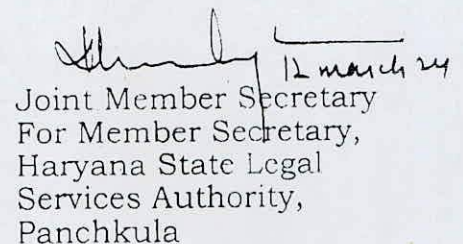 12 march 24
Joint Member Secretary
For Member Secretary,
Haryana State Legal
Services Authority,
Panchkula